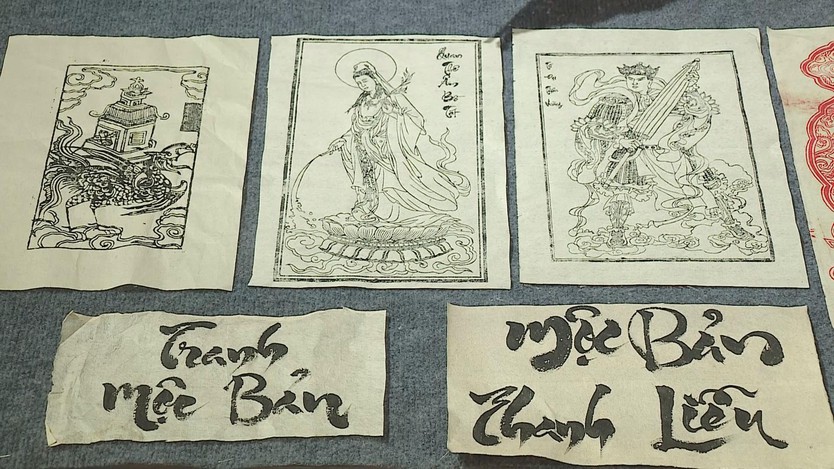 Quan
Thế
Âm
Bồ
Tát
Tranh
Mộc Bản
Mộc Bản
Thanh Liễu